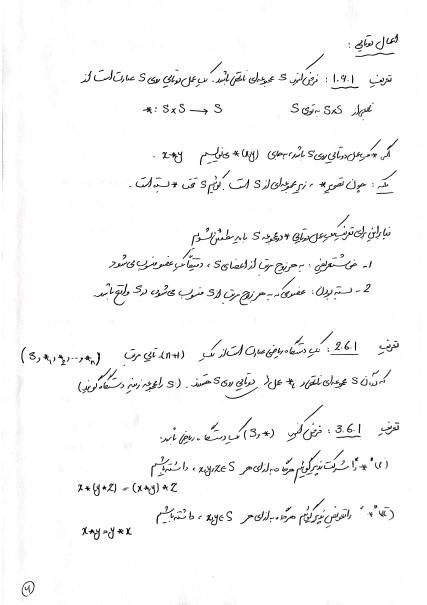 اعمال دوتایی :
تعریف 1.6.1 : فرض کنید S مجموعه‌ای ناتهی باشد. یک عمل دوتایی روی S عبارت است از
نگاشتی از S×S به توی S      * : S×S → S
اگر * یک عمل دوتایی روی S باشد، به جای *(x,y) می‌نویسیم x*y .
نکته : چون تصویر * ، زیرمجموعه‌ای از S است. گوئیم S تحت * بسته است.
بنابراین برای تعریف یک عمل دوتایی * در مجموعه S باید مطمئن شویم
1- خوشتعریفی : به هر زوج مرتب از اعضای S ، دقیقاً یک عضو منسوب می‌شود
2- بسته بودن : عضوی که به هر زوج مرتب از S منسوب می‌شود، در S واقع باشد.
تعریف 2.6.1 : یک دستگاه ریاضی عبارت است از یک (n+1) تایی مرتب (S, *₁, *₂, ..., *ₙ)
که در آن S مجموعه‌ای ناتهی و *ᵢ عمل دوتایی روی S هستند. (S را مجموعه زمینه دستگاه گویند)
تعریف 3.6.1 : فرض کنید (S,*) یک دستگاه ریاضی باشد:
(1) "*" را شرکت‌پذیر گوئیم هرگاه به ازای هر x,y,z∈S ، داشته باشیم
x*(y*z) = (x*y)*z
(2) "*" را تعویض‌پذیر گوئیم هرگاه به ازای هر x,y∈S ، داشته باشیم
x*y = y*x